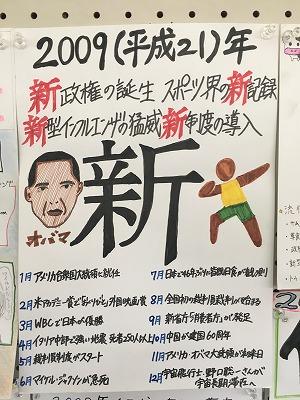 2009(平成21)年
新政権の誕生 スポーツ界の新記録
新型インフルエンザの猛威 新制度の導入
新
オバマ
1月 アメリカ合衆国大統領に就任
2月 米アカデミー賞で「おくりびと」外国映画賞
3月 WBCで日本が優勝
4月 イタリア中部で強い地震 死者250人以上
5月 裁判員制度がスタート
6月 マイケル・ジャクソンが急死
7月 日本で46年ぶりの皆既日食が観測
8月 全国初の裁判員裁判が始まる
9月 新省庁「消費者庁」が発足
10月 中国が建国60周年
11月 アメリカ・オバマ大統領が初来日
12月 宇宙飛行士・野口聡一さんが
宇宙長期滞在へ